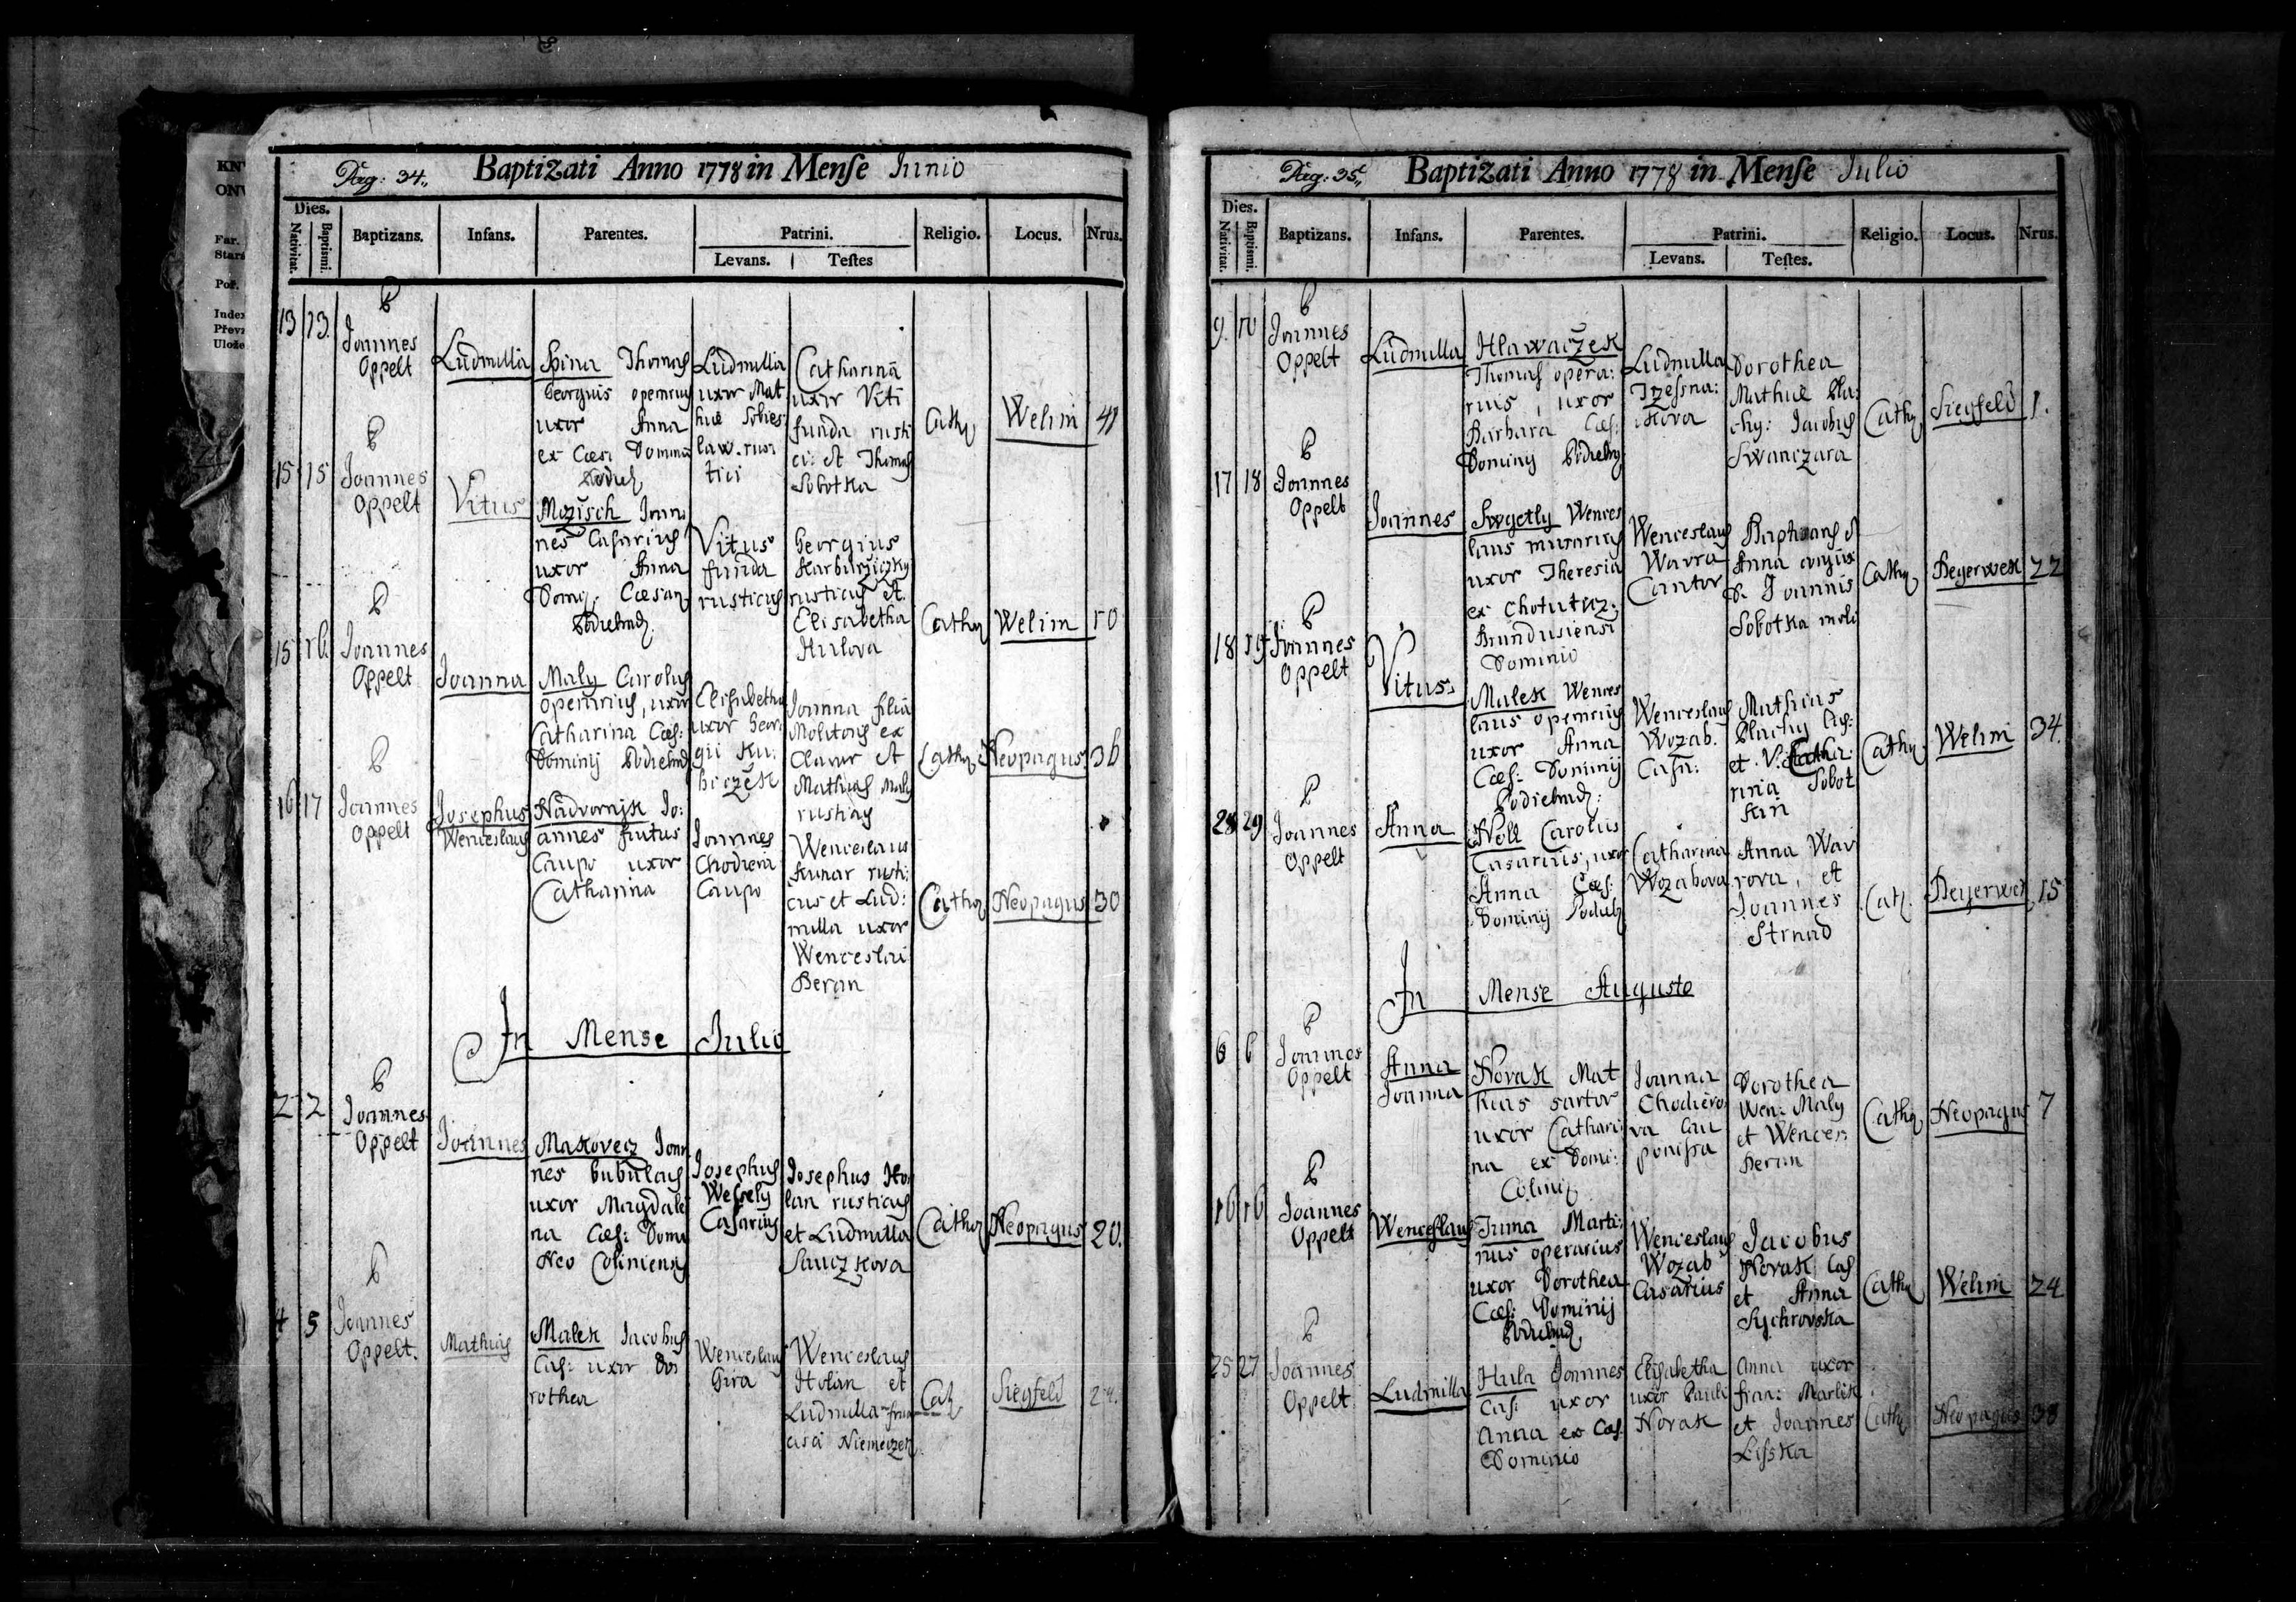 KN
ON
Far.
Star
Poř.
Index
Převz
Ulože
Pag: 34.
Baptizati Anno 1778 in Mense Junio
Dies.
Nativitat.
Baptismi.
Baptizans.
Infans.
Parentes.
Patrini.
Levans.
Testes
Religio.
Locus.
Nrus.
13 13.
P
Joannes
Oppelt
Ludmilla
Spina Thomas
Georgius operarius
uxor Anna
ex Cæs: Domin
Podieb
Ludmilla
uxor Mat
hiæ Sobies
law. rus
tici
Catharina
uxor Viti
Funda rusti
ci: et Thomas
Sobotka
Cath
Welim
41
15 15
P
Joannes
Oppelt
Vitus
Mozisch Joan
nes Casarius
uxor Anna
Domi. Cæsar
Podiebrad
Vitus
Funda
rusticus
Georgius
rusticus et
Elisabetha
Hulova
Cath
Welim
50
15 16.
P
Joannes
Oppelt
Joanna
Maly Carolus
operarius, uxor
Catharina Cæs:
Dominij Podiebrad
Elisabetha
uxor Geor
gii Ku:
biczek
Joanna filia
Molitoris ex
et
Mathias Maly
rusticus
Cath
Neopagus
36
16 17
P
Joannes
Oppelt
Josephus
Wenceslaus
Nadvornjk Jo:
annes
Caupo uxor
Catharina
Joannes
Chodiera
Caupo
Wenceslaus
Kunar rusti:
cus et Lud:
milla uxor
Wenceslai
Beran
Cath
Neopagus
30
In Mense Julio
2 2
P
Joannes
Oppelt
Joannes
Makovecz Joan
nes bubulcus
uxor Magdale
na Cæs: Domi
Neo Coliniensis
Josephus
Wessely
Casarius
Josephus Ho
lan rusticus
et Ludmilla
Sauczkova
Cath
Neopagus
20.
4 5
P
Joannes
Oppelt.
Mathias
Malek Jacobus
Cas: uxor Do
rothea
Wenceslaus
Gira
Wenceslaus
Holan et
Ludmilla
Niemeczek
Cat
Siegfeld
Pag: 35.
Baptizati Anno 1778 in Mense Julio
Dies.
Nativitat.
Baptismi.
Baptizans.
Infans.
Parentes.
Patrini.
Levans.
Testes.
Religio.
Locus.
Nrus.
9. 10
P
Joannes
Oppelt
Ludmilla
Hlawaczek
Thomas opera:
rius, uxor
Barbara Cæs:
Dominy Podiebra
Ludmilla
Trzessna:
kova
Dorothea
Mathiæ Bla:
chy: Jacobus
Swanczara
Cath
Siegfeld
1.
17 18
P
Joannes
Oppelt
Joannes
Swyetly Wences
laus murarius
uxor Theresia
ex Chotuticz:
Brundusiensi
Dominio
Wenceslaus
Wavra
Cantor
Anna
Joannis
Sobotka
Cath
Beyerwek
22
18 19
P
Joannes
Oppelt
Vitus
Malek Wences
laus operarius
uxor Anna
Cæs: Dominij
Podiebrad:
Wenceslaus
Wozab.
Casa:
Mathias
Blachy Cas:
et Catha:
rina Sobot
kin
Cath
Welim
34.
28 29
P
Joannes
Oppelt
Anna
Noll Carolus
Casarius, uxor
Anna Cæs:
Dominij Podieb
Catharina
Wozabova
Anna Wav
rova, et
Joannes
Strnad
Cat.
Beyerwek
15
In Mense Auguste
6 6
P
Joannes
Oppelt
Anna
Joanna
Novak Mat
hias sartor
uxor Cathari
na ex Domi:
Colini
Joanna
Chodiero
va Cau
ponissa
Dorothea
Wen: Maly
et Wences:
Beran
Cath
Neopagus
7
16 16
P
Joannes
Oppelt
Wenceslaus
Tuma Marti:
nus operarius
uxor Dorothea
Cæs: Dominij
Podiebrad
Wenceslaus
Wozab
Casarius
Jacobus
Novak Cas
et Anna
Sychrovska
Cath
Welim
24
25 27
P
Joannes
Oppelt
Ludmilla
Hula Joannes
Cas: uxor
Anna ex Cæs.
Dominio
Elisabetha
uxor Pauli
Novak
Anna uxor
Fran: Marlik
et Joannes
Lisska
Cath
Neopagus
38